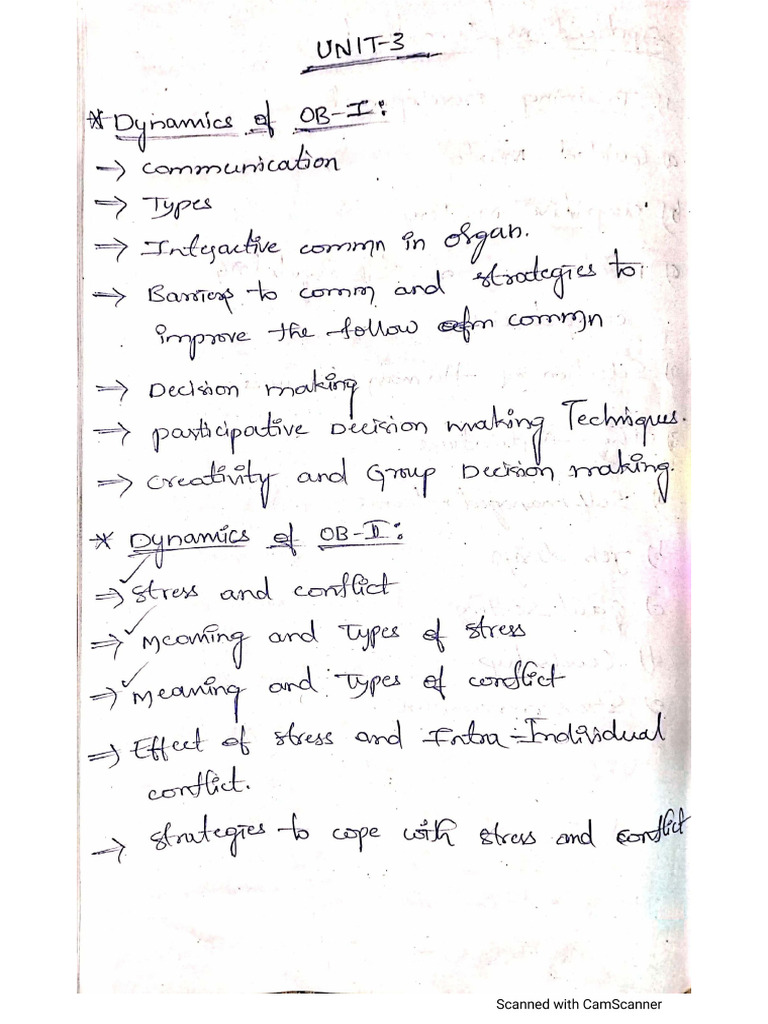 UNIT-3
* Dynamics of OB-I:
→ Communication
→ Types
→ Interactive commn in organ.
→ Barriers to comm and strategies to
improve the follow commn
→ Decision making
→ participative Decision making Techniques.
→ creativity and Group Decision making.
* Dynamics of OB-II:
→ stress and conflict
→ Meaning and Types of stress
→ Meaning and Types of conflict
→ Effect of stress and Intra-Individual
conflict.
→ strategies to cope with stress and conflict
Scanned with CamScanner